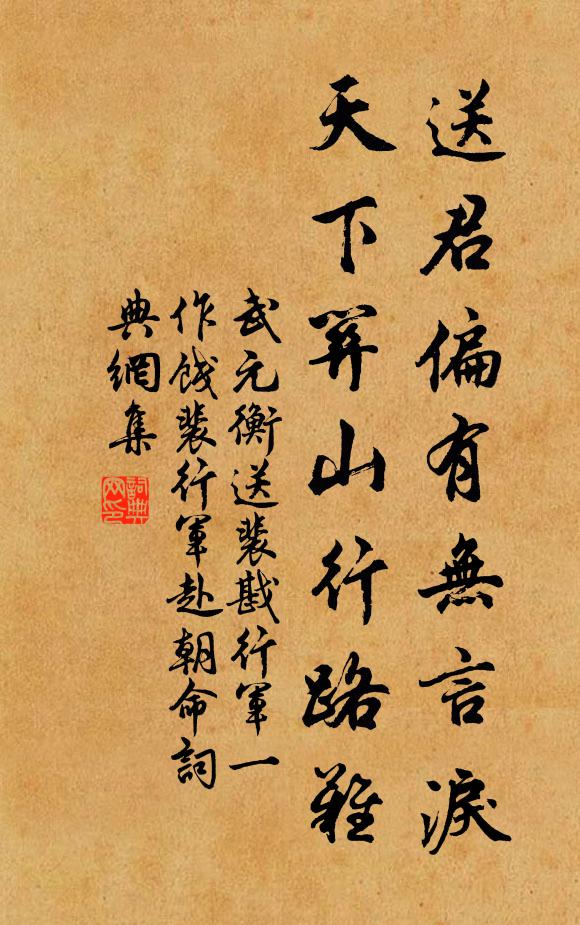 送君偏有無言淚
天下關山行路難
武元衡送裴戡行軍一
作餞裴行軍赴朝命詞
典網集
詞典网印